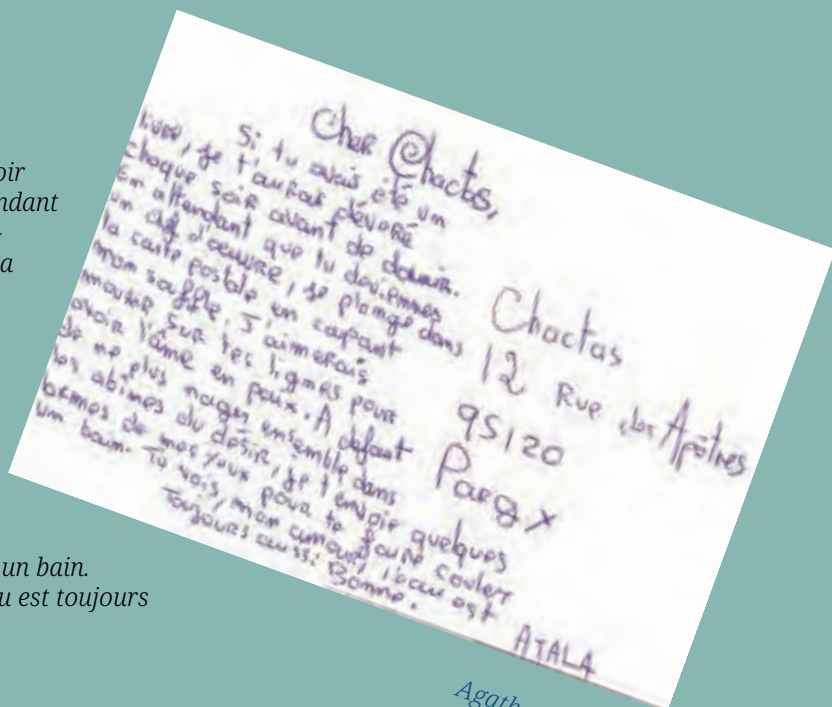 oir
ndant
a
un bain.
u est toujours
Cher Chactas,
Si tu avais été un
livre, je t'aurais dévoré
chaque soir avant de dormir.
En attendant que tu deviennes
un chef d'oeuvre, je plonge dans
la carte postale en coupant
mon souffle. J'aimerais
mourir sur tes lignes pour
avoir l'âme en paix. A défaut
de ne plus nager ensemble dans
les abîmes du désir, je t'envoie quelques
larmes de mes yeux pour te faire couler
un bain. Tu vois, mon amour, l'eau est
Toujours aussi Bonne.
ATALA
Chactas
12 Rue des Apôtres
95120
Agath